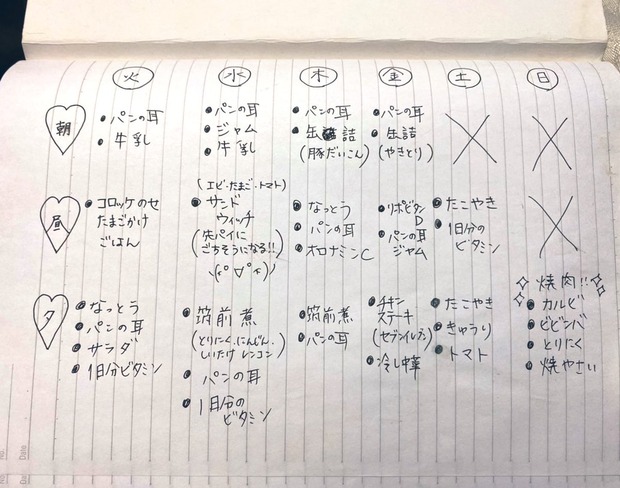 火 水 木 金 土 日
朝
・パンの耳
・牛乳
・パンの耳
・ジャム
・牛乳
・パンの耳
・缶詰
(豚だいこん)
・パンの耳
・缶詰
(やきとり)
昼
・コロッケのせ
たまごかけ
ごはん
(エビ・たまご・トマト)
・サンド
ウィッチ
(先パイに
ごちそうになる!!)
・なっとう
・パンの耳
・オロナミンC
・リポビタン
D
・パンの耳
ジャム
・たこやき
・1日分の
ビタミン
夕
・なっとう
・パンの耳
・サラダ
・1日分ビタミン
・筑前煮
(とりにく、にんじん、
しいたけ レンコン)
・パンの耳
・1日分の
ビタミン
・筑前煮
・パンの耳
・チキン
ステーキ
(セブンイレブン)
・冷し中華
・たこやき
・きゅうり
・トマト
焼肉!!
・カルビ
・ビビンバ
・とりにく
・焼やさい
No.
Date